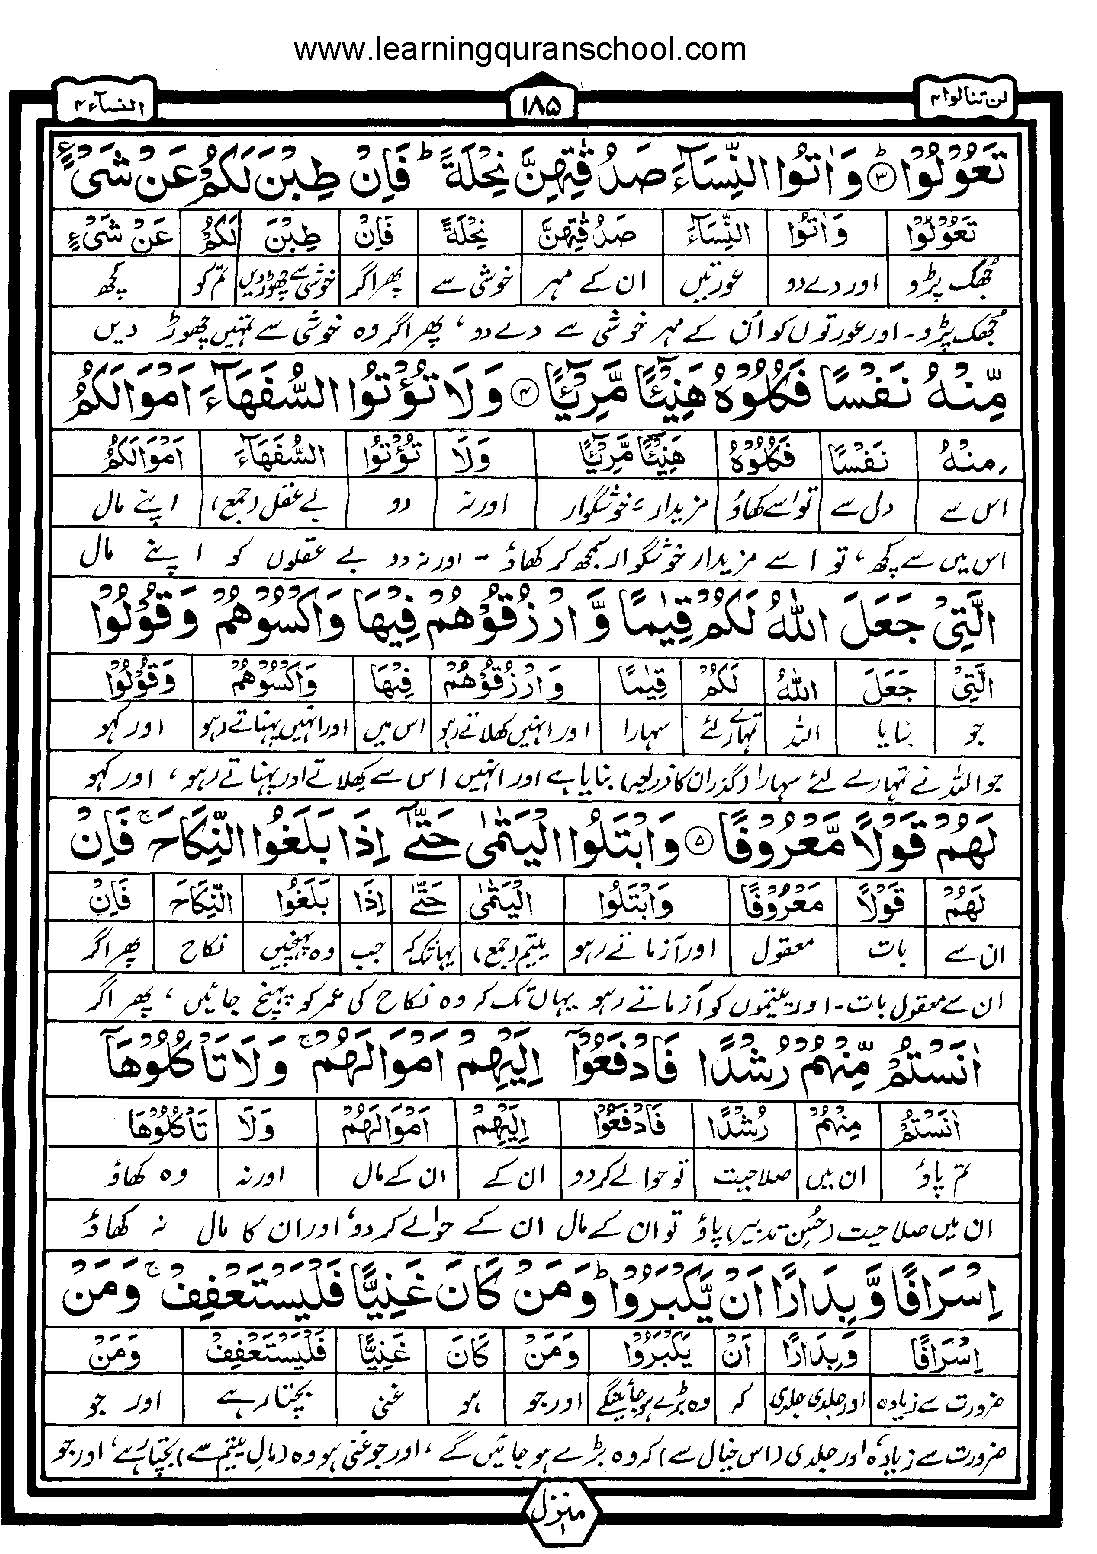 www.learningquranschool.com
لن تنالوا ۴
۱۸۵
النسآء ۴
تَعُوْلُوْا ۳ وَاٰتُوا النِّسَآءَ صَدُقٰتِهِنَّ نِحْلَةً ؕ فَاِنْ طِبْنَ لَكُمْ عَنْ شَیْءٍ
تَعُوْلُوْا وَاٰتُوا النِّسَآءَ صَدُقٰتِهِنَّ نِحْلَةً فَاِنْ طِبْنَ لَكُمْ عَنْ شَیْءٍ
جھک پڑو اور دے دو عورتیں ان کے مہر خوشی سے پھر اگر خوشی سے چھوڑ دیں تم کو کچھ
جھک پڑو۔ اور عورتوں کو اُن کے مہر خوشی سے دے دو ، پھر اگر وہ خوشی سے تمہیں چھوڑ دیں
مِّنْهُ نَفْسًا فَكُلُوْهُ هَنِیْٓئًا مَّرِیْٓئًا ۴ وَلَا تُؤْتُوا السُّفَهَآءَ اَمْوَالَكُمُ
مِنْهُ نَفْسًا فَكُلُوْهُ هَنِیْٓئًا مَّرِیْٓئًا وَلَا تُؤْتُوا السُّفَهَآءَ اَمْوَالَكُمُ
اس سے دل سے تو اسے کھاؤ مزیدار ، خوشگوار اور نہ دو بے عقل (جمع) اپنے مال
اس میں سے کچھ ، تو اسے مزیدار خوشگوار سمجھ کر کھاؤ ۔ اور نہ دو بے عقلوں کو اپنے مال
الَّتِیْ جَعَلَ اللّٰهُ لَكُمْ قِیٰمًا وَّارْزُقُوْهُمْ فِیْهَا وَاكْسُوْهُمْ وَقُوْلُوْا
الَّتِیْ جَعَلَ اللّٰهُ لَكُمْ قِیٰمًا وَارْزُقُوْهُمْ فِیْهَا وَاكْسُوْهُمْ وَقُوْلُوْا
جو بنایا اللہ تمہارے لئے سہارا اور انہیں کھلاتے رہو اس میں اور انہیں پہناتے رہو اور کہو
جو اللہ نے تمہارے لئے سہارا (گذران کا ذریعہ) بنایا ہے اور انہیں اس سے کھلاتے اور پہناتے رہو ، اور کہو
لَهُمْ قَوْلًا مَّعْرُوْفًا ۵ وَابْتَلُوا الْیَتٰمٰی حَتّٰۤی اِذَا بَلَغُوا النِّكَاحَ ۚ فَاِنْ
لَهُمْ قَوْلًا مَعْرُوْفًا وَابْتَلُوا الْیَتٰمٰی حَتّٰۤی اِذَا بَلَغُوا النِّكَاحَ فَاِنْ
ان سے بات معقول اور آزماتے رہو یتیم (جمع) یہانتک کہ جب وہ پہنچیں نکاح پھر اگر
ان سے معقول بات۔ اور یتیموں کو آزماتے رہو یہاں تک کہ وہ نکاح کی عمر کو پہنچ جائیں ، پھر اگر
اٰنَسْتُمْ مِّنْهُمْ رُشْدًا فَادْفَعُوْۤا اِلَیْهِمْ اَمْوَالَهُمْ ۚ وَلَا تَاْكُلُوْهَاۤ
اٰنَسْتُمْ مِنْهُمْ رُشْدًا فَادْفَعُوْۤا اِلَیْهِمْ اَمْوَالَهُمْ وَلَا تَاْكُلُوْهَا
تم پاؤ ان میں صلاحیت تو حوالے کر دو ان کے ان کے مال اور نہ وہ کھاؤ
ان میں صلاحیت (حُسنِ تدبیر) پاؤ تو ان کے مال ان کے حوالے کر دو ، اور ان کا مال نہ کھاؤ
اِسْرَافًا وَّبِدَارًا اَنْ یَّكْبَرُوْا ؕ وَمَنْ كَانَ غَنِیًّا فَلْیَسْتَعْفِفْ ۚ وَمَنْ
اِسْرَافًا وَبِدَارًا اَنْ یَكْبَرُوْا وَمَنْ كَانَ غَنِیًّا فَلْیَسْتَعْفِفْ وَمَنْ
ضرورت سے زیادہ اور جلدی جلدی کہ وہ بڑے ہو جائینگے اور جو ہو غنی بچتا رہے اور جو
ضرورت سے زیادہ اور جلدی (اس خیال سے) کہ وہ بڑے ہو جائیں گے ، اور جو غنی ہو وہ (مال یتیم سے) بچتا رہے ، اور جو
منزل ۱